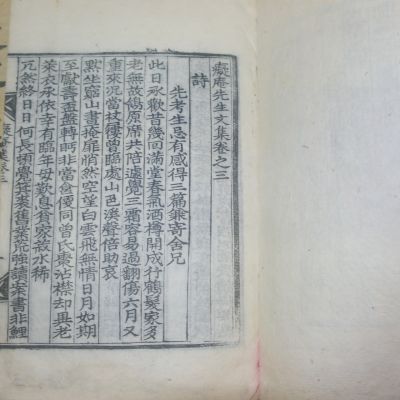 癡庵先生文集卷之三
詩
先考生忌有感得三篇兼寄舍兄
此日承歡昔幾回滿堂春氣酒樽開成行鶴髮家多
老無故鴒原席共陪遽覺三霜容易過翻傷六月又
重來況當杖屨曾臨處山色溪聲倍助哀
默坐窮山晝掩扉悄然空望白雲飛無情日月如期
至獻壽盃盤轉眄非當食倐同曾氏棗沾襟却異老
萊衣承依幸有臨年母歎息貧家菽水稀
兀然終日日何長頓覺箕裘舊業荒強讀案書非鯉